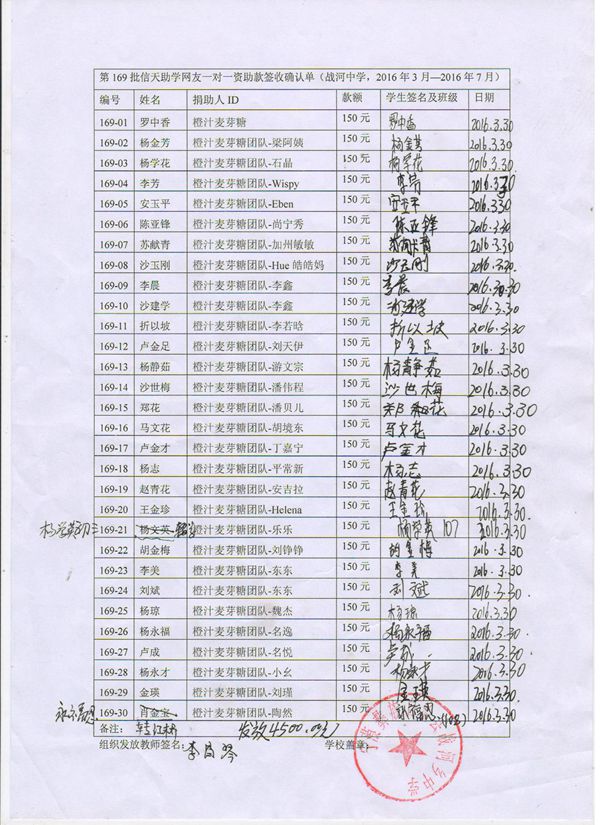 第 169 批信天助学网友一对一资助款签收确认单（战河中学，2016 年 3 月—2016 年 7 月）
编号 姓名 捐助人 ID 款额 学生签名及班级 日期
169-01 罗中香 橙汁麦芽糖 150 元 罗中香 2016.3.30
169-02 杨金芳 橙汁麦芽糖团队-梁阿姨 150 元 杨金芳 2016.3.30
169-03 杨学花 橙汁麦芽糖团队-石晶 150 元 杨学花 2016.3.30
169-04 李芳 橙汁麦芽糖团队-Wispy 150 元 李芳 2016.3.30
169-05 安玉平 橙汁麦芽糖团队-Eben 150 元 安玉平 2016.3.30
169-06 陈亚锋 橙汁麦芽糖团队-尚宁秀 150 元 陈亚锋 2016.3.30
169-07 苏献青 橙汁麦芽糖团队-加州敏敏 150 元 苏献青 2016.3.30
169-08 沙玉刚 橙汁麦芽糖团队-Hue 皓皓妈 150 元 沙玉刚 2016.3.30
169-09 李晨 橙汁麦芽糖团队-李鑫 150 元 李晨 2016.3.30
169-10 沙建学 橙汁麦芽糖团队-李鑫 150 元 沙建学 2016.3.30
169-11 折以坡 橙汁麦芽糖团队-李若晗 150 元 折以坡 2016.3.30
169-12 卢金足 橙汁麦芽糖团队-刘天伊 150 元 卢金足 2016.3.30
169-13 杨静茹 橙汁麦芽糖团队-游文宗 150 元 杨静茹 2016.3.30
169-14 沙世梅 橙汁麦芽糖团队-潘伟程 150 元 沙世梅 2016.3.30
169-15 郑花 橙汁麦芽糖团队-潘贝儿 150 元 郑和花 2016.3.30
169-16 马文花 橙汁麦芽糖团队-胡境东 150 元 马文花 2016.3.30
169-17 卢金才 橙汁麦芽糖团队-丁嘉宁 150 元 卢金才 2016.3.30
169-18 杨志 橙汁麦芽糖团队-平常新 150 元 杨志 2016.3.30
169-19 赵青花 橙汁麦芽糖团队-安吉拉 150 元 赵青花 2016.3.30
169-20 王金珍 橙汁麦芽糖团队-Helena 150 元 王金珍 2016.3.30
169-21 杨文英 橙汁麦芽糖团队-乐乐 150 元 107 2016.3.30
169-22 胡金梅 橙汁麦芽糖团队-刘铮铮 150 元 胡金梅 2016.3.30
169-23 李美 橙汁麦芽糖团队-东东 150 元 李美 2016.3.30
169-24 刘斌 橙汁麦芽糖团队-东东 150 元 刘斌 2016.3.30
169-25 杨琼 橙汁麦芽糖团队-魏杰 150 元 杨琼 2016.3.30
169-26 杨永福 橙汁麦芽糖团队-名逸 150 元 杨永福 2016.3.30
169-27 卢成 橙汁麦芽糖团队-名悦 150 元 卢成 2016.3.30
169-28 杨永才 橙汁麦芽糖团队-小幺 150 元 杨永才 2016.3.30
169-29 金瑛 橙汁麦芽糖团队-刘瑾 150 元 金瑛 2016.3.30
169-30 肖金宝 橙汁麦芽糖团队-陶然 150 元 2016.3.30
备注： 发放4500.00元
组织发放教师签名： 学校盖章：
战河乡中学